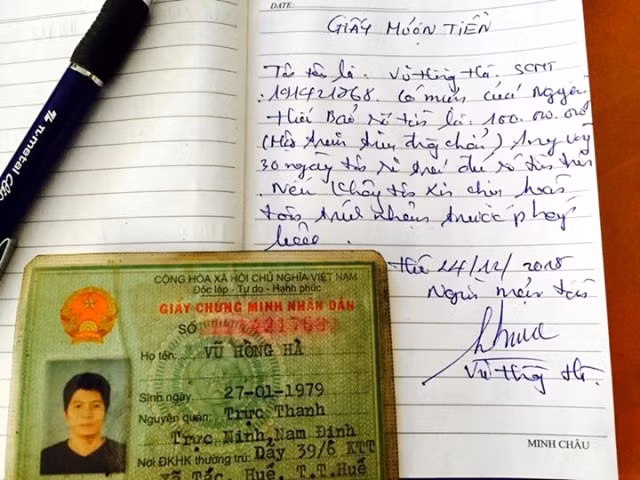 DATE:
GIẤY MƯỢN TIỀN
Tôi tên là. Vũ Hồng Hà. SCMT
191421768. Có mượn của Nguyễn
Thế Bảo số tiền là 100.000.000
(Một trăm triệu đồng chẵn) Trong vòng
30 ngày tôi sẽ trả đủ số tiền trên
Nếu không tôi xin chịu hoàn
toàn trách nhiệm trước pháp
luật.
24/12/2018
Người mượn tiền
Vũ Hồng Hà.
MINH CHÂU
CỘNG HÒA XÃ HỘI CHỦ NGHĨA VIỆT NAM
Độc lập - Tự do - Hạnh phúc
GIẤY CHỨNG MINH NHÂN DÂN
SỐ
Họ tên: VŨ HỒNG HÀ
Sinh ngày: 27-01-1979
Nguyên quán: Trực Thanh
Trực Ninh, Nam Định
Nơi ĐKHK thường trú: Dãy 39/6 KTT
Xã Tắc, Huế, T.T.Huế